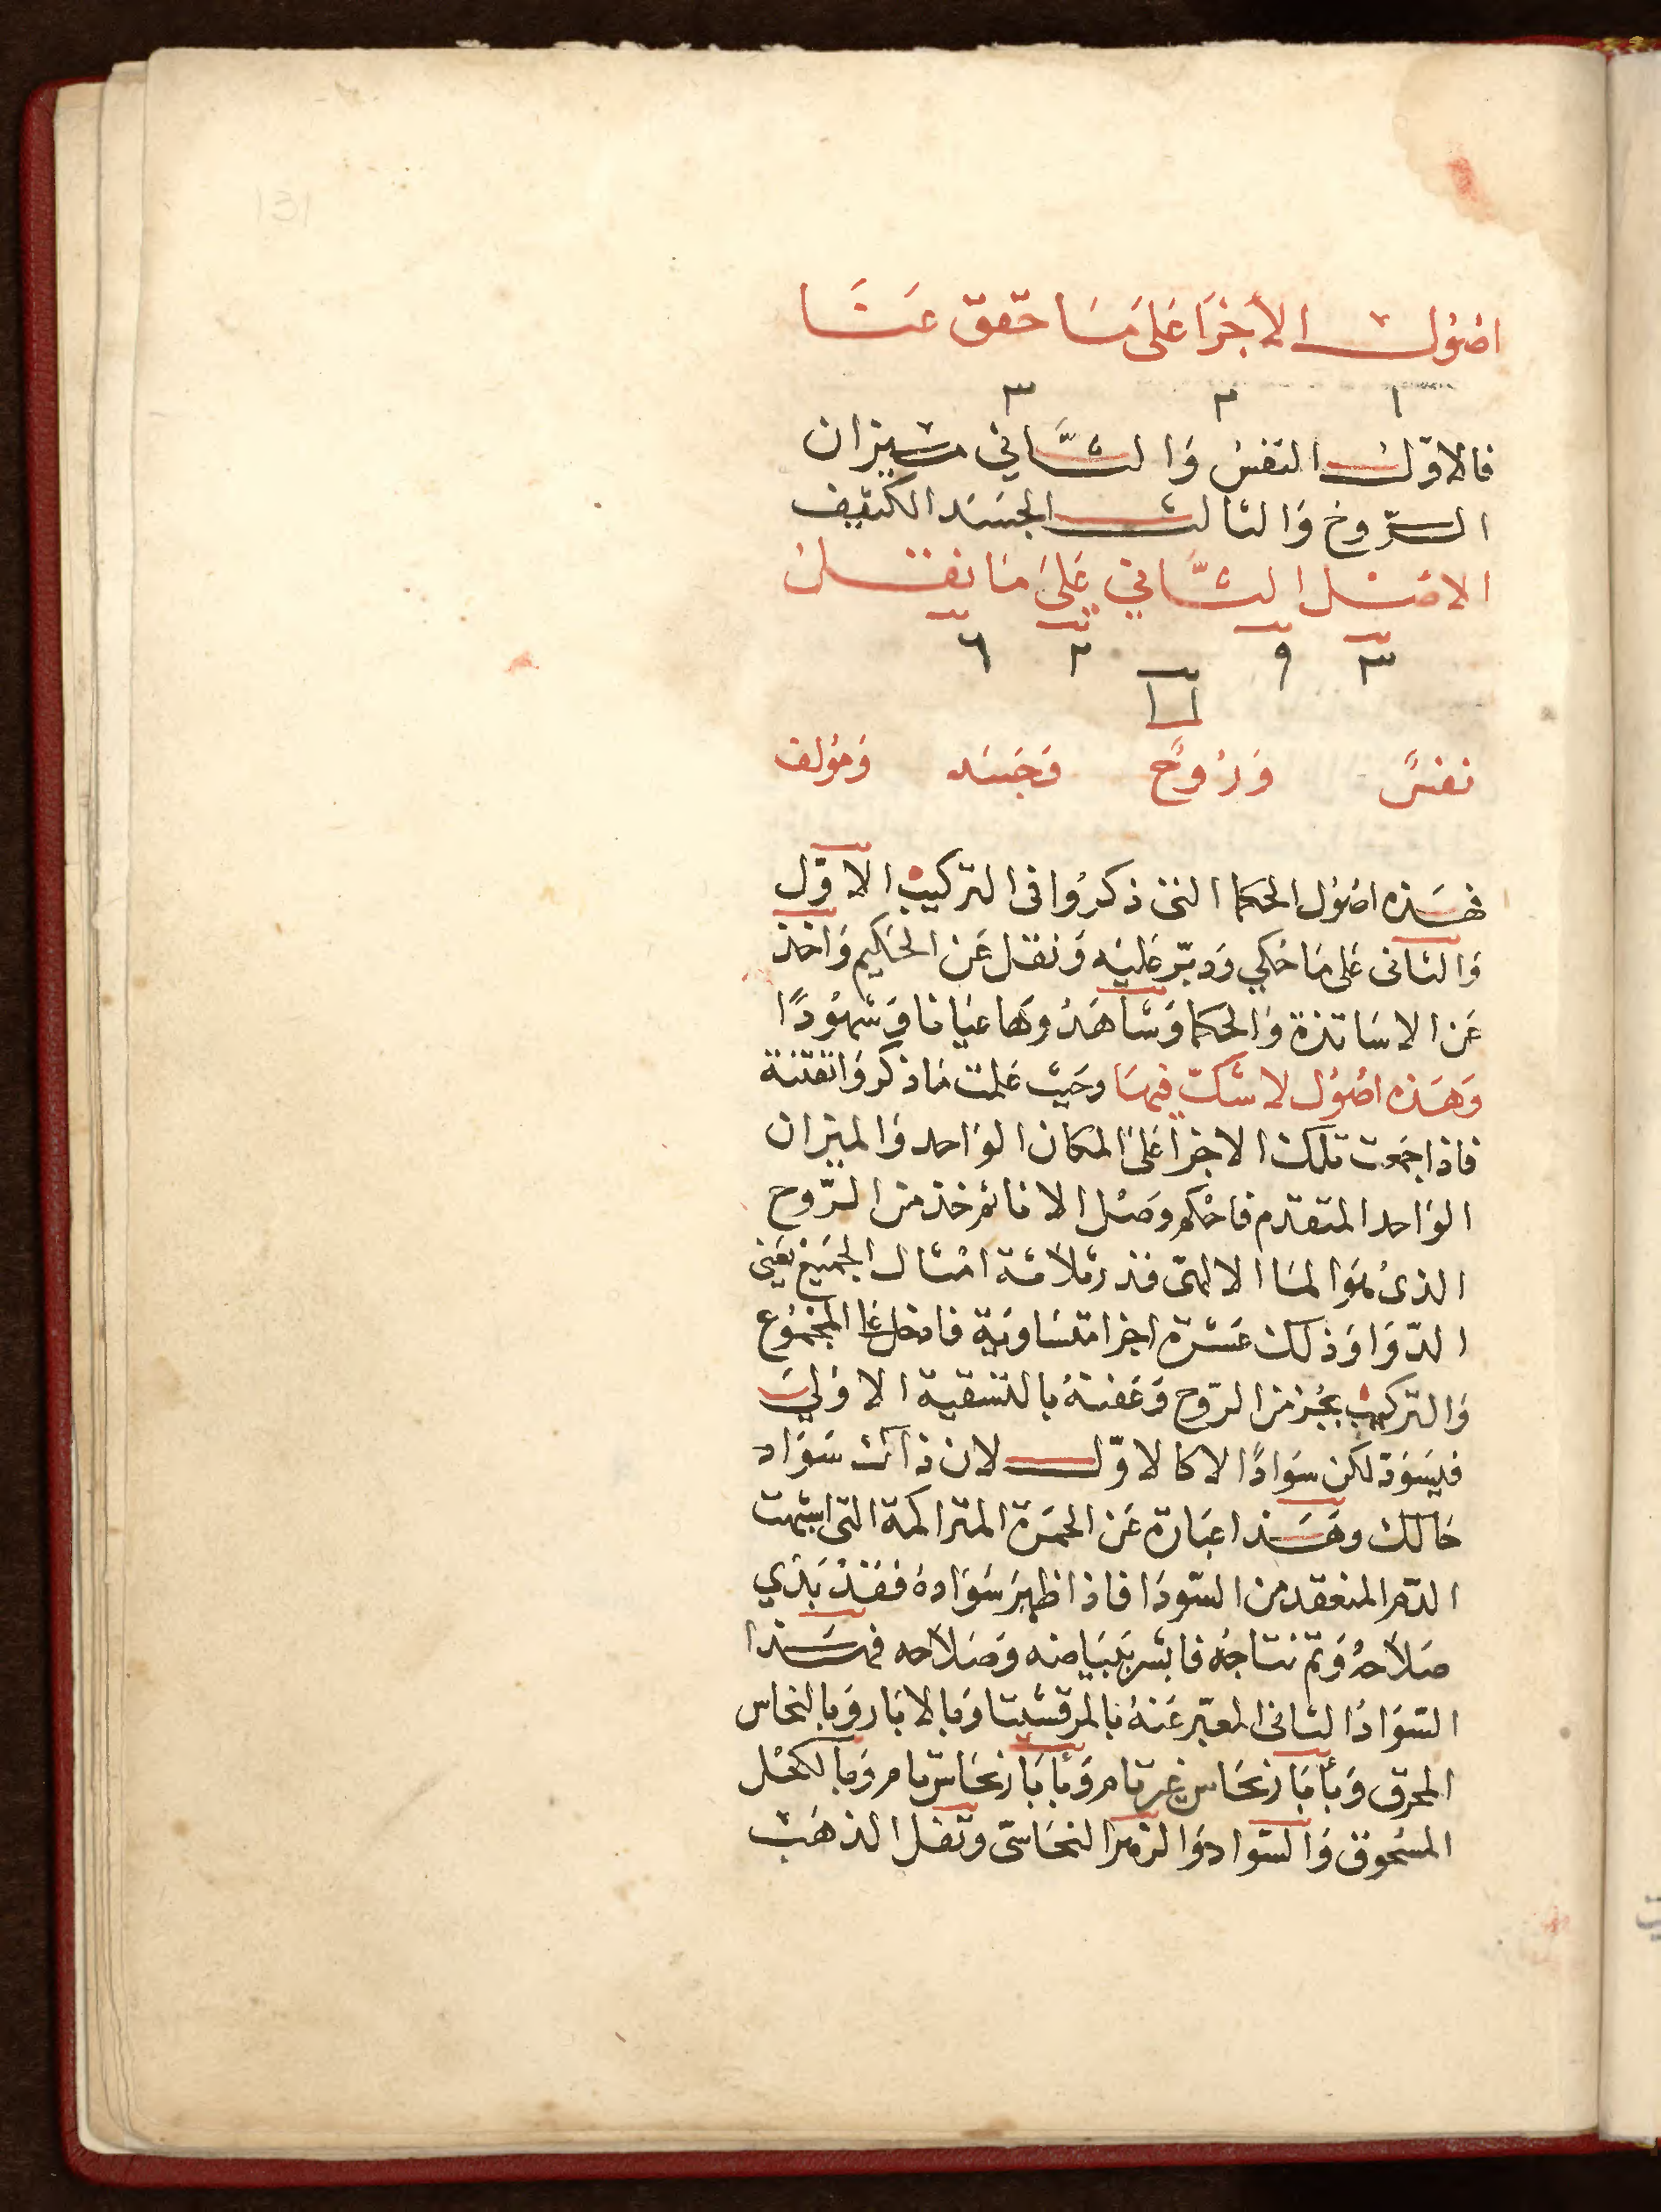 131
اصول الأجزا على ما حقق عنا
١ ٢ ٣
فالاوّل النفسُ وَالثّاني ميزان
الرّوح وَالثالث الجسَد الكثيف
الاصل الثّاني على ما نقل
٣ ٩ ٢ ٦
نفسٌ وَرُوحٌ وَجَسَد وَمؤلف
فهَذه اصُول الحكما التى ذكرُوا فى التركيب الاوّل
وَالثانى على مَا حُكي وَدبّر عَليه وَنقل عَن الحَكيم وَاخذ
عَن الاسَاتذة وَالحكما وَشَاهَدُوهَا عيَانا وَشهوُدًا
وَهَذه اصُول لا شكّ فيهَا وحَيث عَلمت مَا ذكر وَاتقتنة
فاذا جمعت تلك الاجزا عَلى المكان الوَاحد وَالميزان
الوَاحد المتقدم فاحْكم وصَل الانا ثم خذ من الرّوح
الذىُ هوَ المَا الالهىّ قدر ثلاثة امثال الجميع يعني
الدّوَا وَذلك عَشرة اجزا متسَاوية فادخل عَلى المجموُع
وَالتركيب بجُز من الروّح وَعَفنهُ بالتسَقية الاوُليَ
فيسَودّ لكن سَوَادًا لا كالاوّل لان ذاك سَوَاد
حَالك وهَذا عبَارة عَن الحمَرة المتراكمة التى اشبهت
الدّم المنعقد من السّودَا فاذا ظهرَ سَوَادهُ فقَدْ بَدَي
صَلاحُهُ وَتم نتاجُه فابشر ببَيَاضه وَصَلاحه فهَذا
السّوَادُ الثانى المعبّر عَنهُ بالمرقشيثا وَبالابَار وَبالنحاس
المحرق وَبأبَار نحَاس غير تام وَبأبَار نحَاس تام وَبالكحْل
المسْحوق وَالسّواد وَالرّمز النحَاسىّ وثفل الذهَب